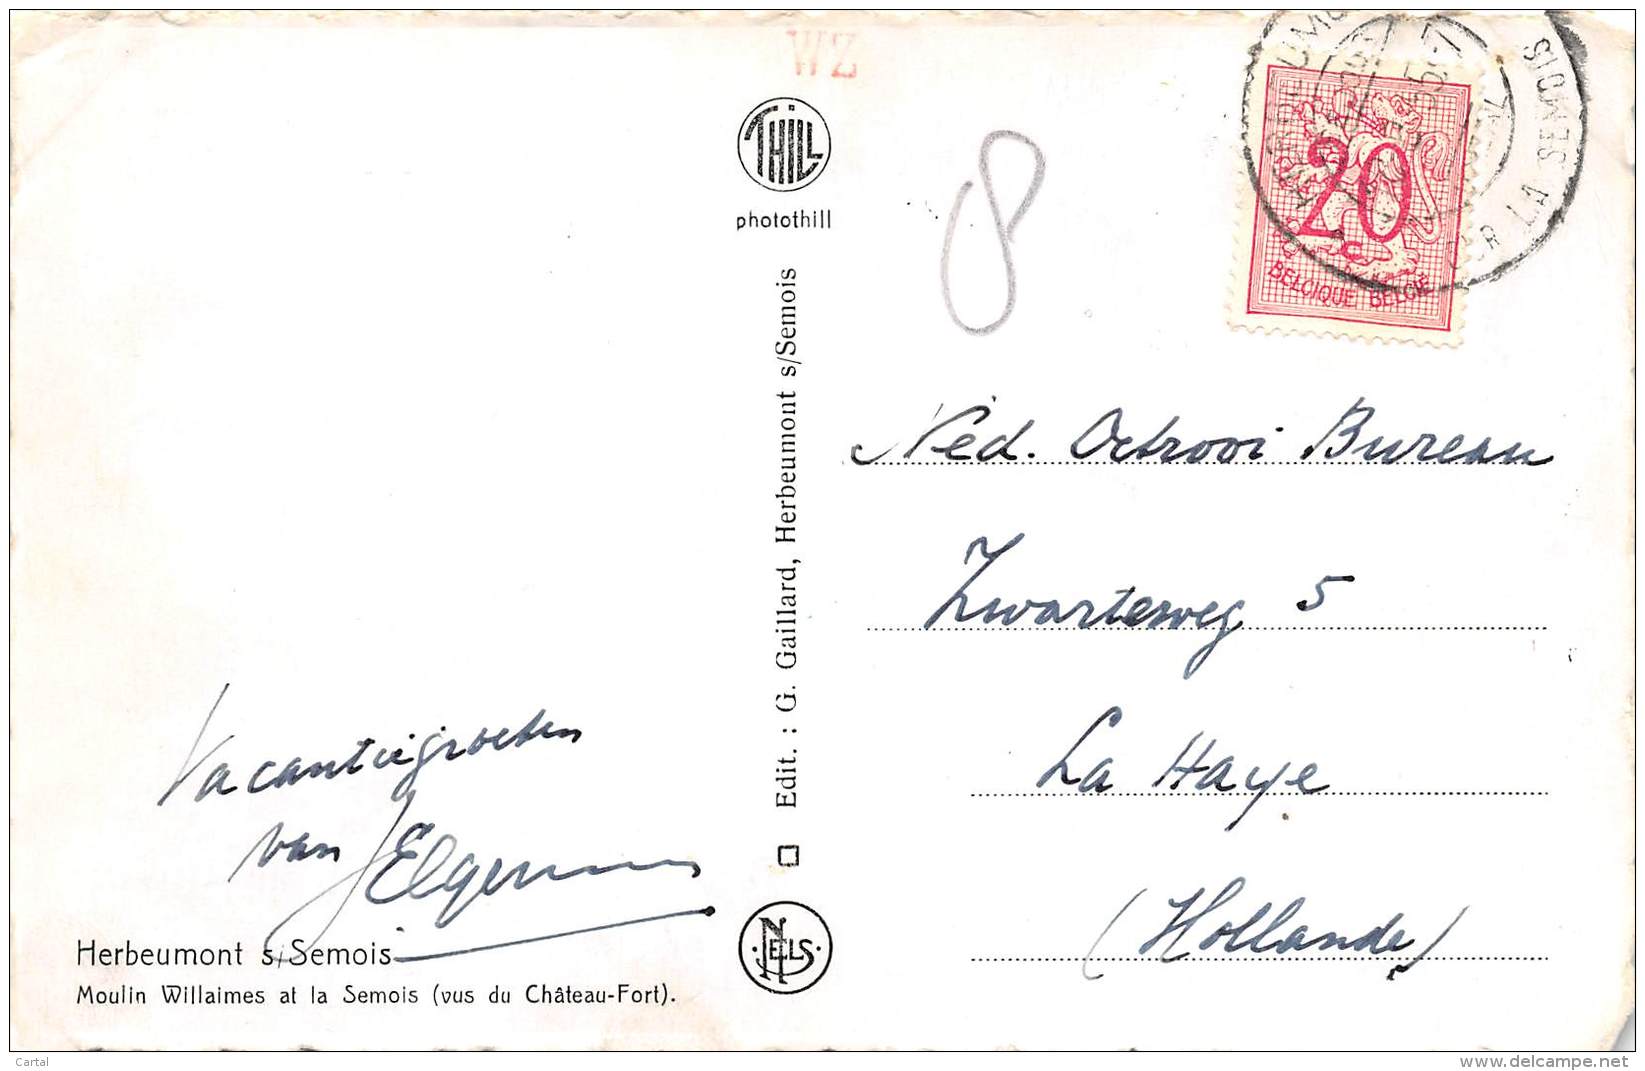 WZ
THILL
photothill
8
20
c
BELGIQUE BELGIË
SUR LA SEMOIS
Edit. : G. Gaillard, Herbeumont s/Semois
NELS
Ned. Octrooi Bureau
Zwarteweg 5
La Haye
(Hollande)
Vacantiegroeten
van JElgersma
Herbeumont s/Semois
Moulin Willaimes at la Semois (vus du Château-Fort).
Cartal
delcampe.net